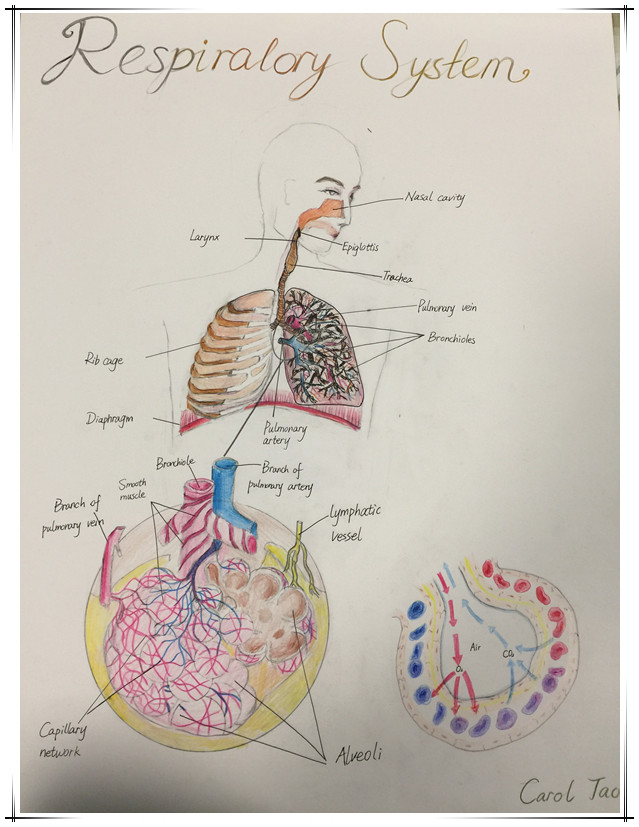 Respiralory System
Nasal cavity
Larynx
Epiglottis
Trachea
Pulmonary vein
Bronchioles
Rib cage
Diaphragm
Pulmonary
artery
Bronchiole
Branch of
pulmonary artery
Smooth
muscle
Branch of
pulmonary vein
Lymphatic
vessel
Air
O₂
CO₂
Capillary
network
Alveoli
Carol Tao